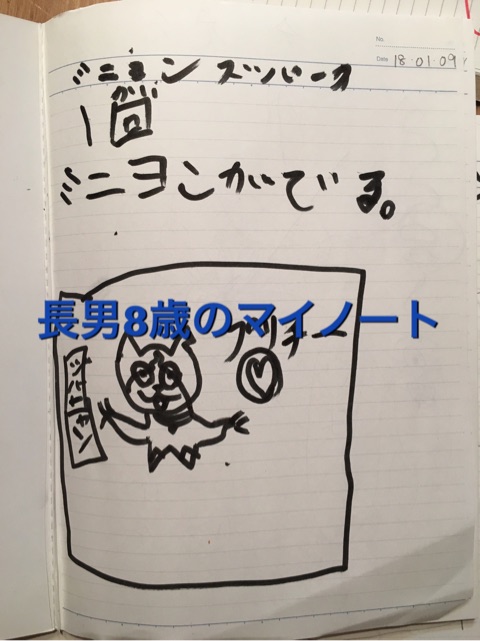 No.
Date 18・01・09
ミニヨンズパーク
かい
1回
ミニヨンがでる。
長男8歳のマイノート
プリチー
ジャジャン